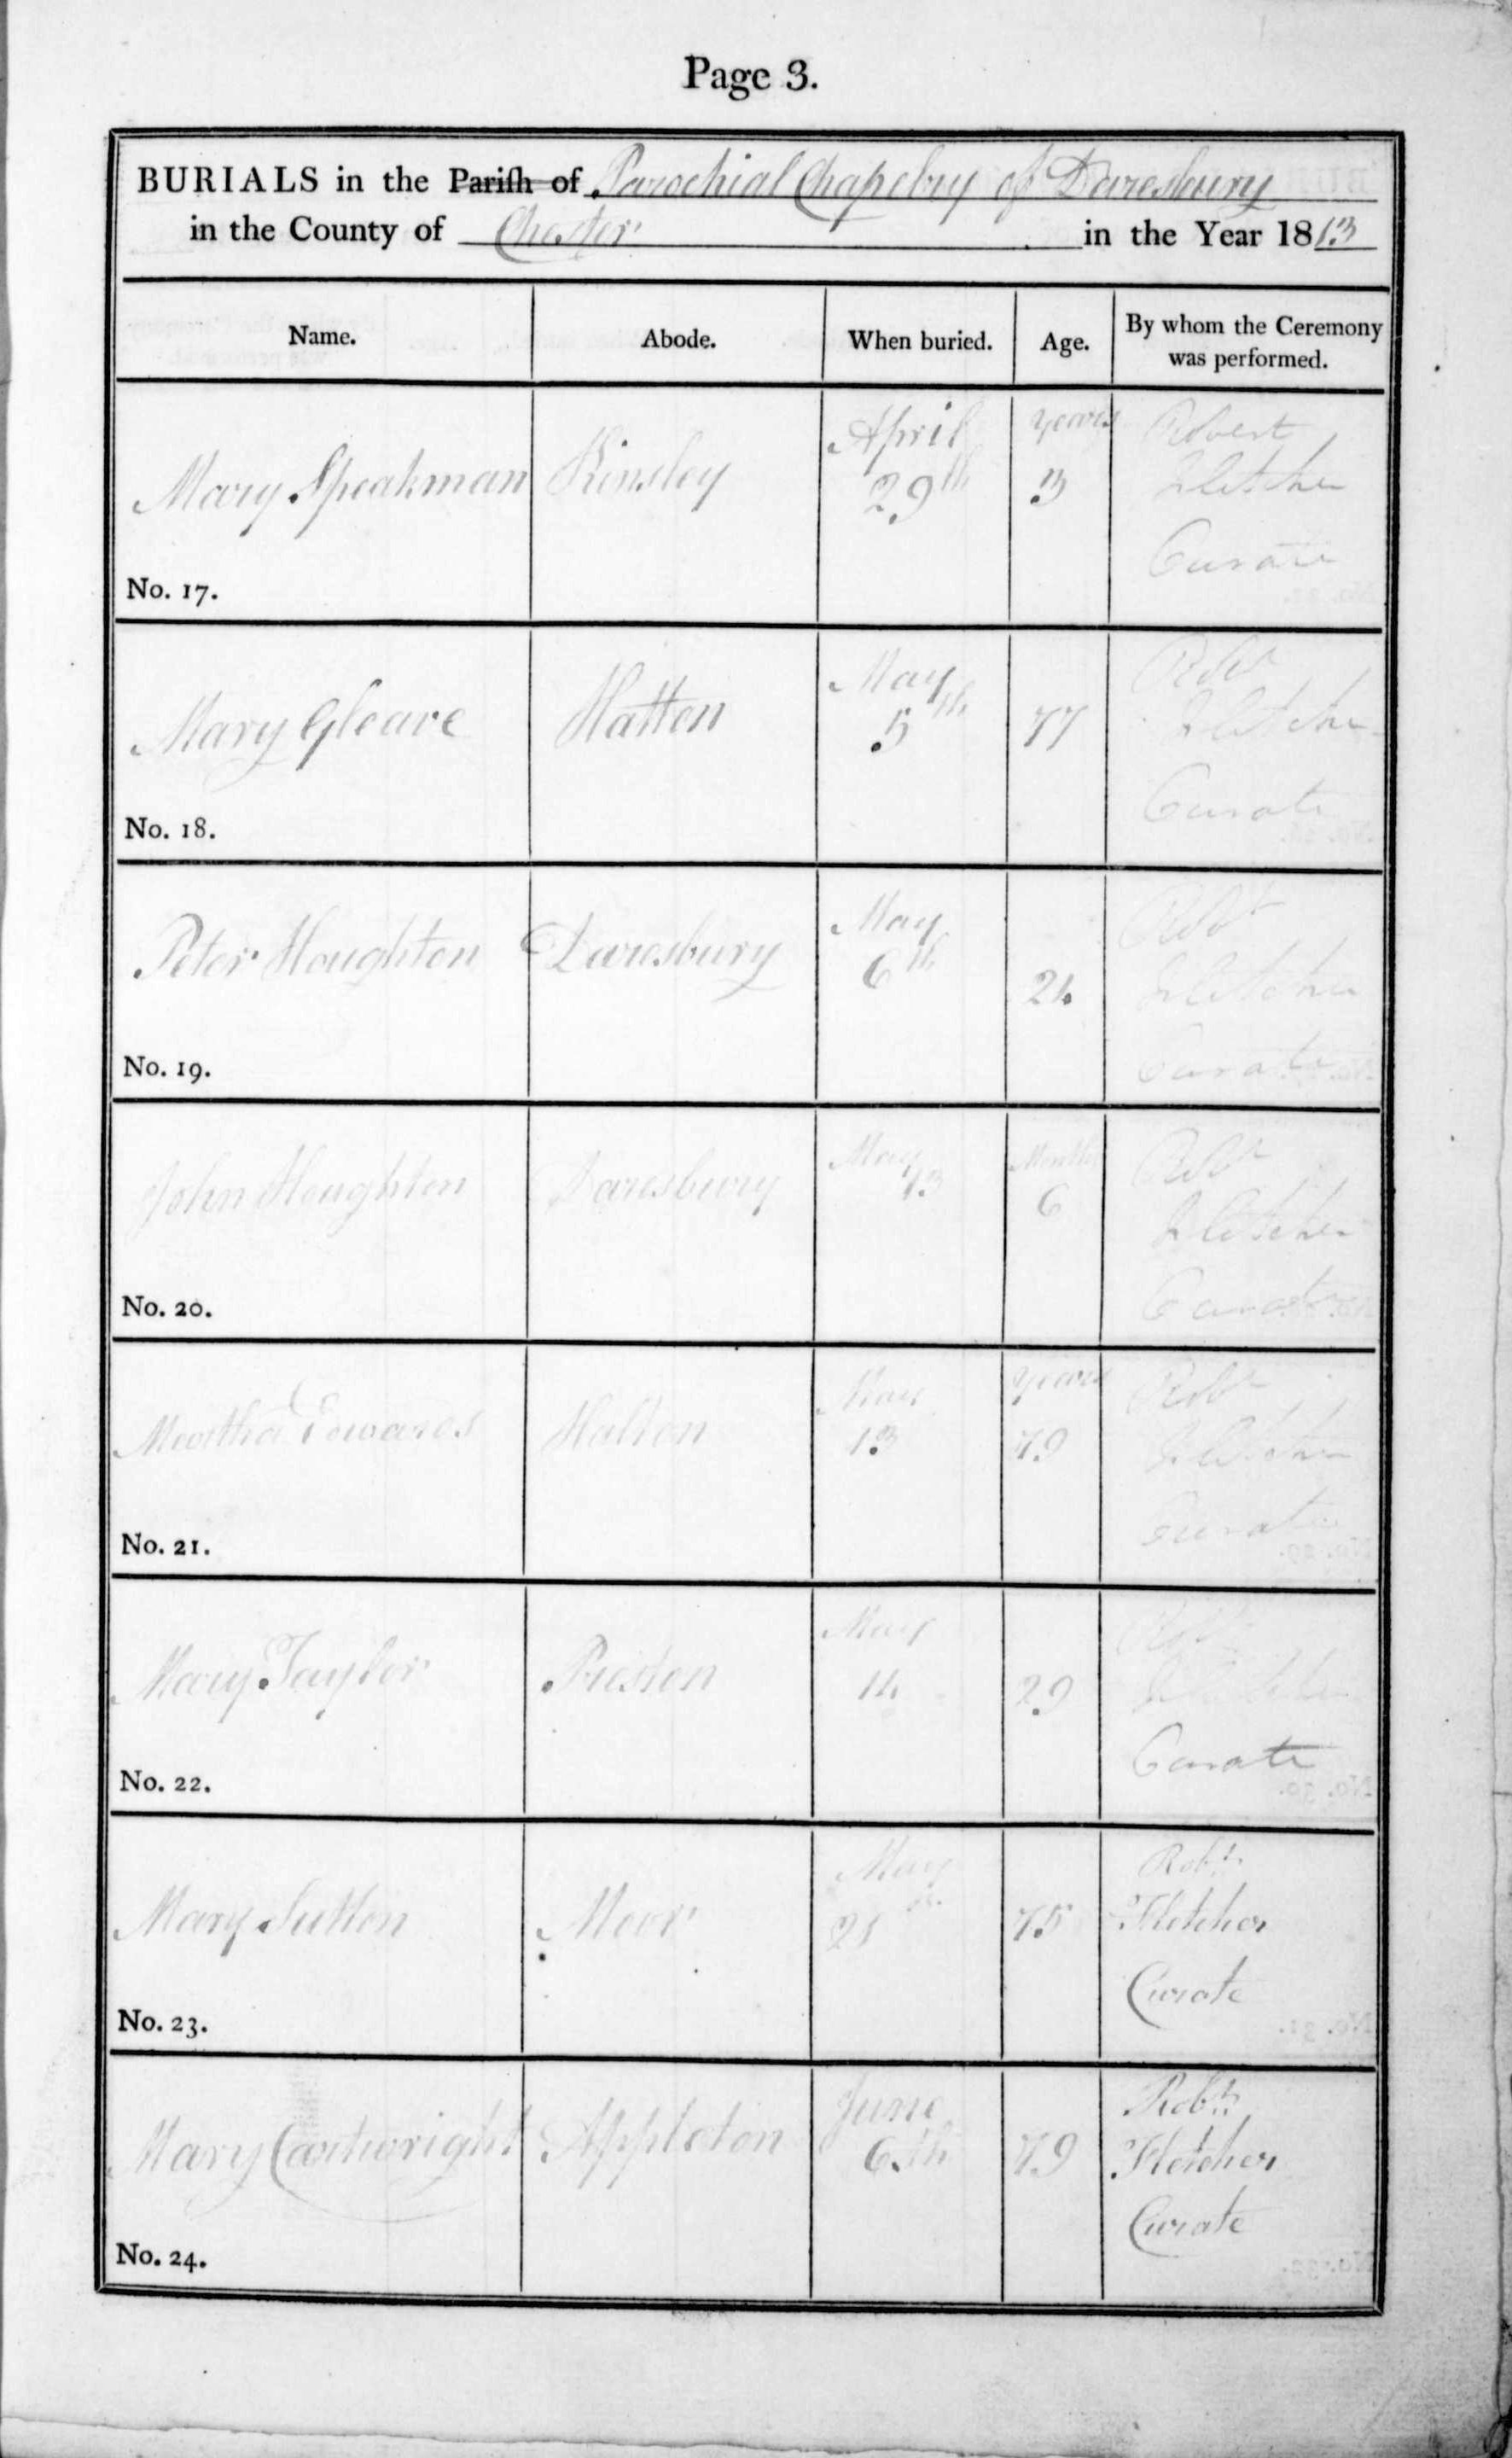 Page 3.
BURIALS in the Parish of Parochial Chapelry of Daresbury
in the County of Chester in the Year 1813
Name. Abode. When buried. Age. By whom the Ceremony was performed.
Mary Speakman Kinsley April 29th years 3 Robert Fletcher Curate
No. 17.
Mary Gleave Hatton May 5th 77 Robt Fletcher Curate
No. 18.
Peter Houghton Daresbury May 6th 24 Robt Fletcher Curate
No. 19.
John Houghton Daresbury May 13 Months 6 Robt Fletcher Curate
No. 20.
Martha Edwards Halton May 13 years 79 Robt Fletcher Curate
No. 21.
Mary Taylor Preston May 14 29 Robt Fletcher Curate
No. 22.
Mary Sutton Moor May 21 75 Robt. Fletcher Curate
No. 23.
Mary Cartwright Appleton June 6th 79 Robt. Fletcher Curate
No. 24.